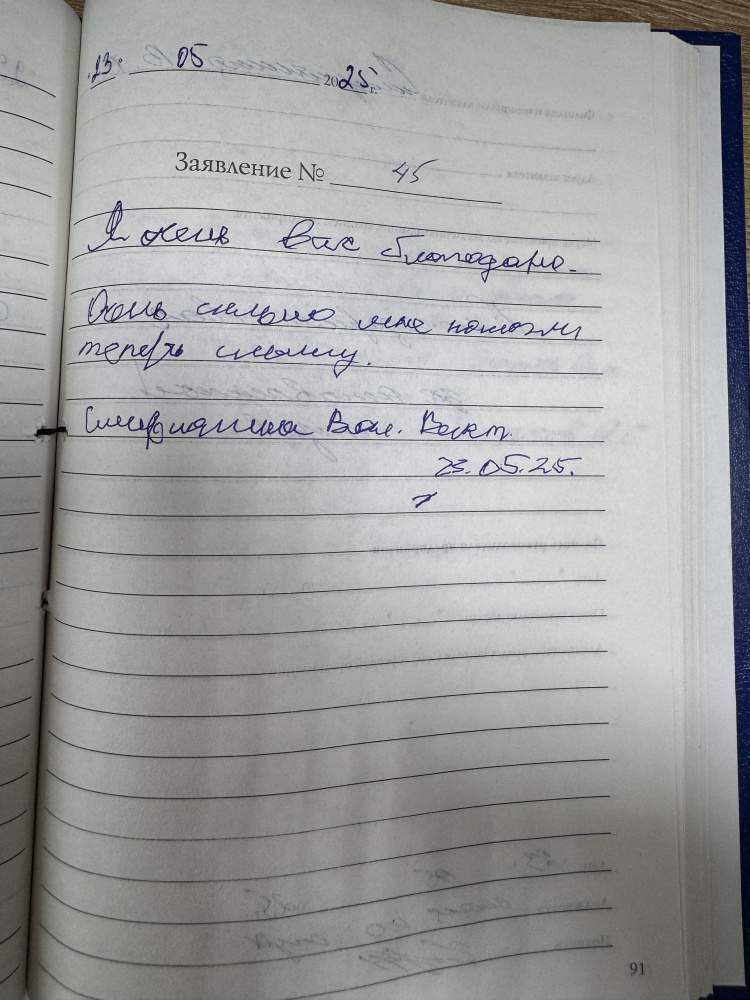 23. 05 2025 г.
Заявление № 45
Я очень вас благодарю.
Очень сильно мне помогли
теперь слышу.
Вал. Викт.
23.05.25.
91